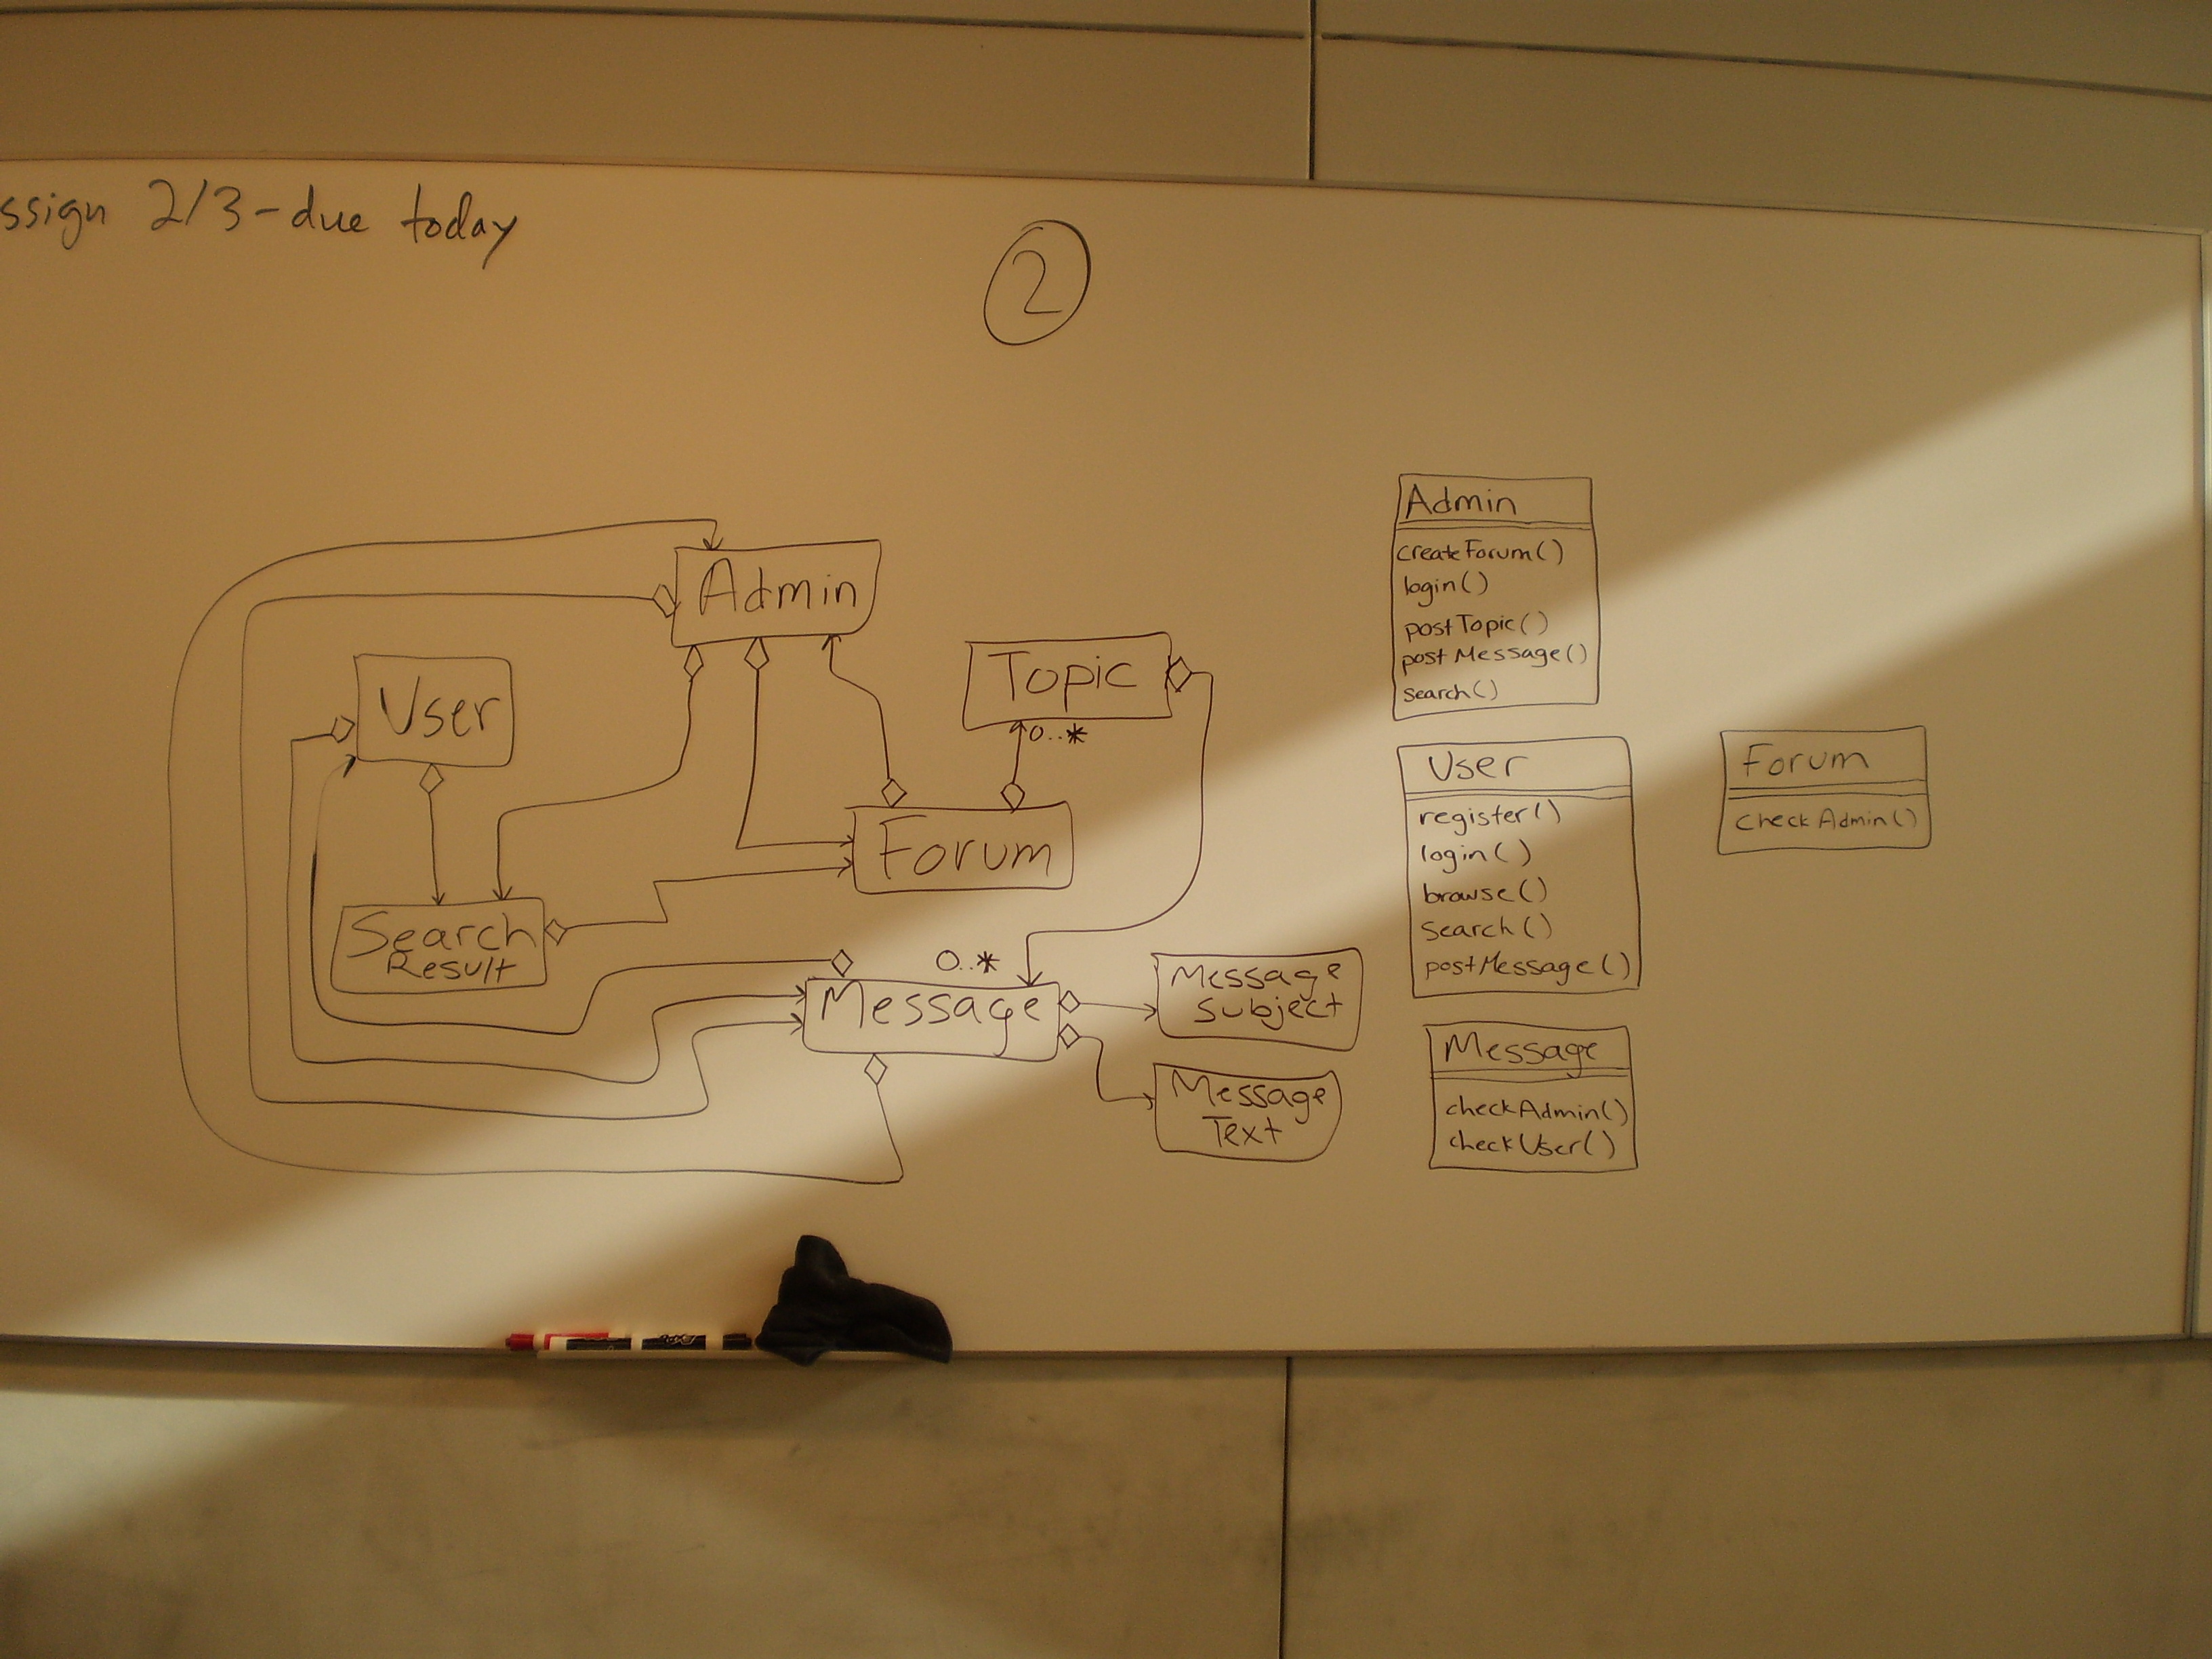 ssign 2/3-due today
2
Admin
User
Topic
0..*
Forum
Search
Result
0..*
Message
Message
Subject
Message
Text
Admin
createForum()
login()
postTopic()
postMessage()
search()
User
register()
login()
browse()
search()
postMessage()
Forum
checkAdmin()
Message
checkAdmin()
checkUser()